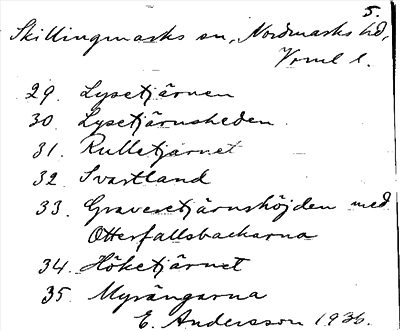 5.
Skillingmarks sn, Nordmarks hd,
Vrml l.
29. Lysetjärnen
30. Lysetjärnsheden
31. Rulletjärnet
32. Svartland
33. Gravesetjärnshöjden med
Otterfallsbackarna
34. Höketjärnet
35. Myrängarna
E. Andersson 1936.